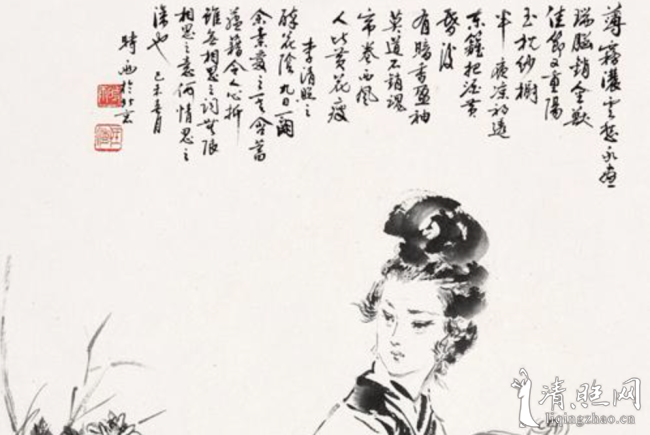 薄霧濃雲愁永晝
瑞腦銷金獸
佳節又重陽
玉枕紗櫥
半夜涼初透
東籬把酒黃
昏後
有暗香盈袖
莫道不銷魂
帘卷西風
人比黃花瘦
李清照之
醉花陰九日一闋
余素愛之其含蓄
蘊籍令人心折
雖無相思之詞
相思之意何情思之
深也 己未
於北京
清旺网
liqingzhao.cn